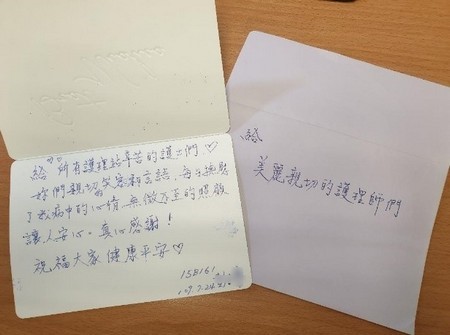 給 所有護理站辛苦的護士們♡
妳們親切笑容和言語,每天撫慰
了我病中的心情,無微不至的照顧
讓人安心。真心感謝!
祝福大家健康平安♡
15B161
109.7.24
給
美麗親切的護理師們